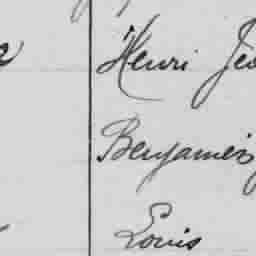 Henri
Benjamin
Louis